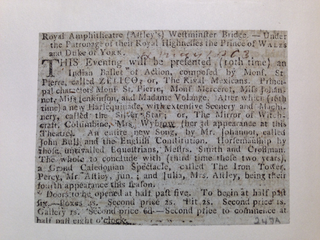 Royal Amphitheatre (Astley's) Westminster Bridge.—Under
the Patronage of their Royal Highnesses the Prince of WALES
and Duke of YORK.
THIS Evening will be presented (10th time) an
Indian Ballet of Action, composed by Mons. St.
Pierre, called ZELICO; or, The Rival Mexicans. Principal
characters Mons. St. Pierre, Mons. Merceret, Miss Johannot,
Miss Jenkinson, and Madame Volange. After which (16th
time) a new Harlequinade, with extensive Scenery and Machinery,
called the Silver Star; or, The Mirror of Witchcraft.
Columbine, Mrs. Wybrow (her 3d appearance at this
Theatre). An entire new Song, by Mr. Johannot, called
John Bull and the English Constitution. Horsemanship by
those unrivalled Equestrians, Messrs. Smith and Crossman.
The whole to conclude with (third time these two years),
a Grand Caledonian Spectacle, called The Iron Tower,
Percy, Mr. Astley, jun.; and Julia, Mrs. Astley, being their
fourth appearance this season.
Doors to be opened at half past five. To begin at half past
six.—Boxes 4s. Second price 2s. Pit 2s. Second price 1s.
Gallery 1s. Second price to commence at
half past eight o'clock.